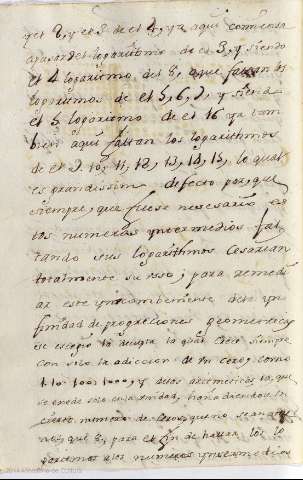 q.e el 2, y el 3. de el 4, y ya aqui comiensa
a pasar del logaritmo de el 3, y siendo
el 4 logaritmo del 8, aqui faltan los
logaritmos de el 5, 6, 7, y siendo
el 5 logaritmo de el 16 ya tam
bien aqui faltan los logarithmos
de el 9. 10, 11, 12, 13, 14, 15, lo qual
es grandissimo defecto por que
siempre, que fuese necesario es
tos numeros yntermedios fal
tando sus logarithmos Cesarian
totalmente su uso; para remedi
ar este ynconbeniente de la yn
finidad de progreciones geometricas
se escogio la decupla la qual Crece siempre
con solo la adiccion de un cero, como
1. 10. 100. 1000, y de las aritmeticas la que
se excede solo en la unidad, hanadiendose un
cierto numero de ceros, que no sean menos
que 8, para el fin de hallar los lo
garitmos a los numeros yntermedios